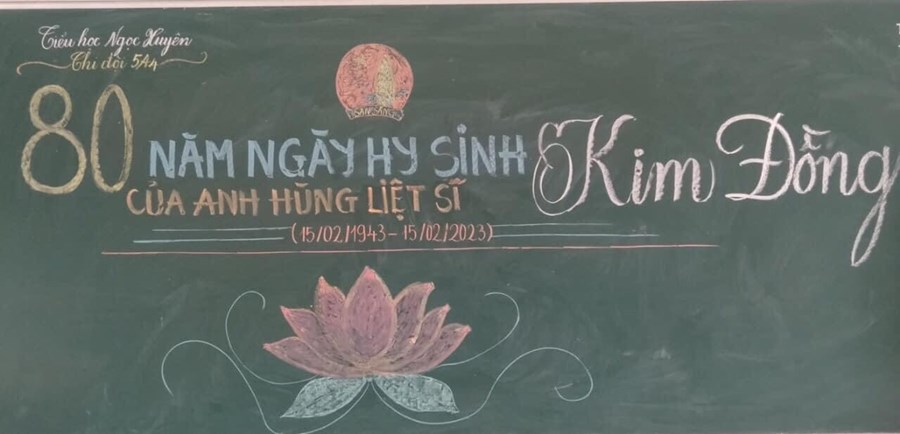 Tiểu học Ngọc Xuyên
Chi đội 5A4
80 NĂM NGÀY HY SINH Kim Đồng
CỦA ANH HÙNG LIỆT SĨ
(15/02/1943 - 15/02/2023)